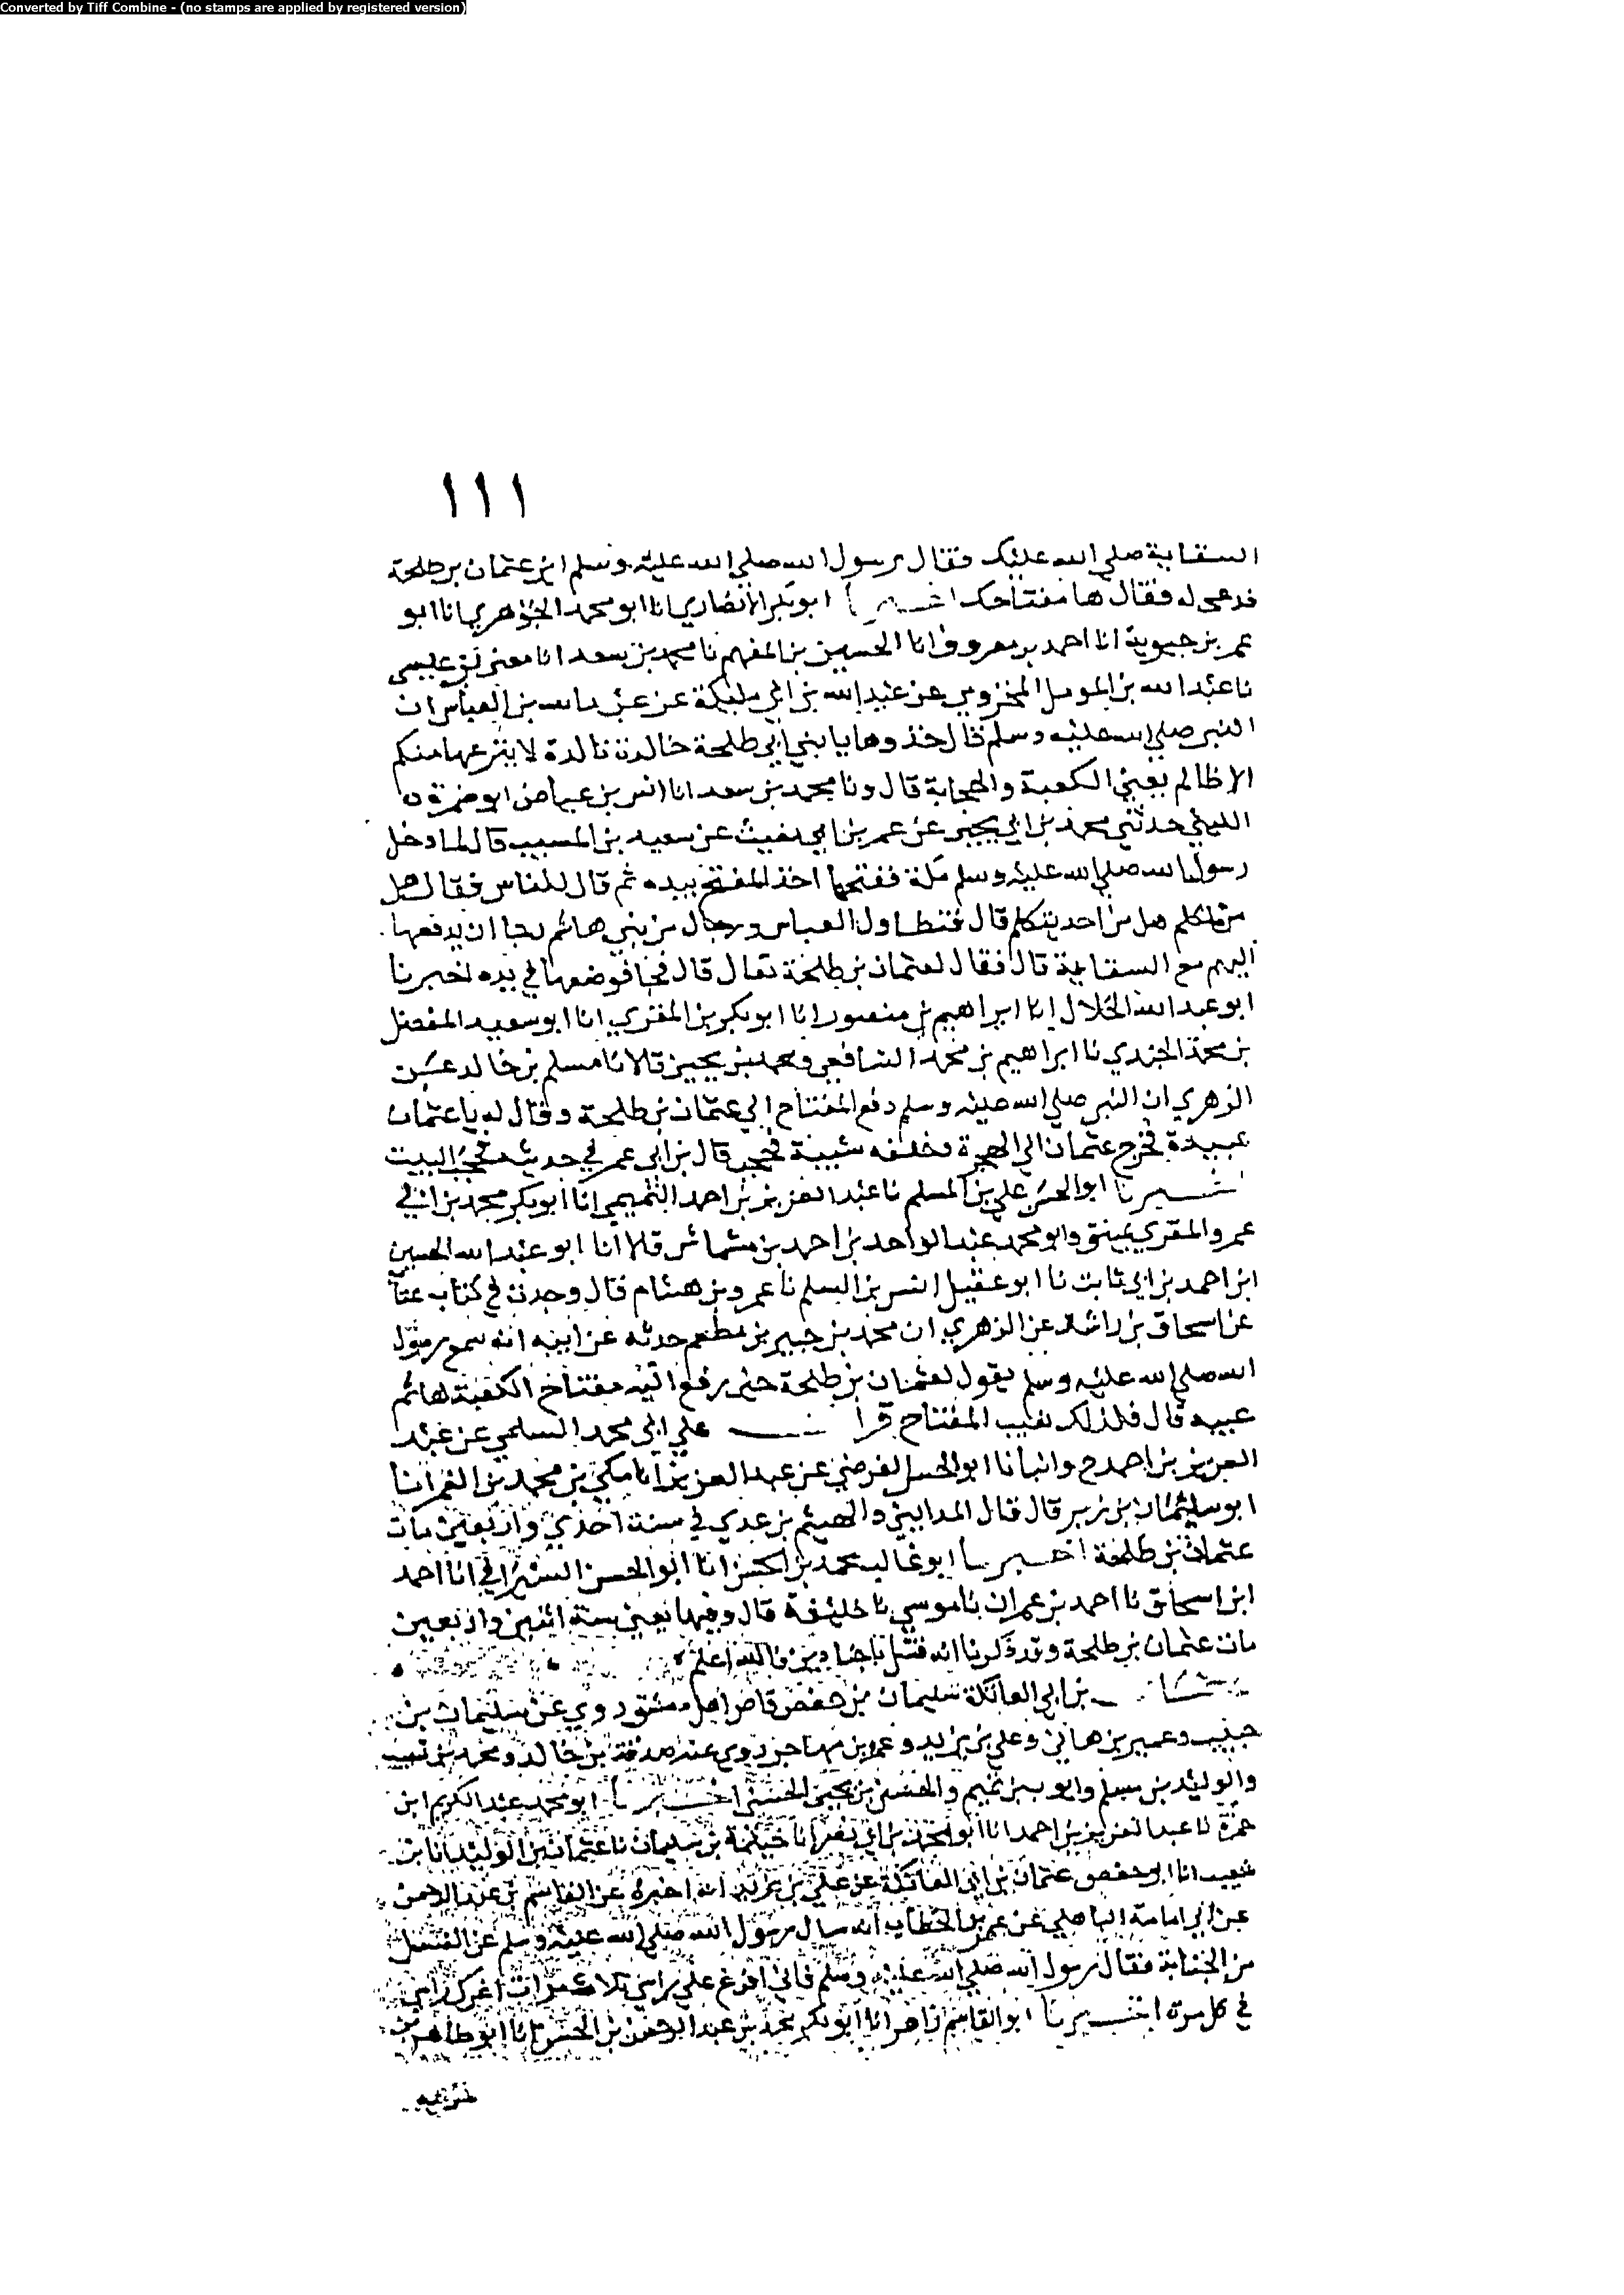 Converted by Tiff Combine - (no stamps are applied by registered version)
١١١
السقاية صلى الله عليك فقال رسول الله صلى الله عليه وسلم اين عثمان بن طلحة
فدعى له فقال ها مفتاحك اخبرنا ابو بكر الانصاري انا ابو محمد الجوهري انا ابو
عمر بن حيوية انا احمد بن معروف انا الحسين بن الفهم نا محمد بن سعد انا معن بن عيسى
نا عبد الله بن المومل المخزومي عن عبد الله بن ابي مليكة عن عبد الله بن العباس ان
النبي صلى الله عليه وسلم قال خذوها يا بني ابي طلحة خالدة تالدة لا ينزعها منكم
الا ظالم يعني الكعبة والحجابة قال ونا محمد بن سعد انا انس بن عياض ابو ضمرة
الليثي حدثني محمد بن ابي يحيى عن عمر بن ابي عن سعيد بن المسيب قال لما دخل
رسول الله صلى الله عليه وسلم مكة ففتحها اخذ المفتح بيده ثم قال للناس فقال هل
من متكلم هل من احد يتكلم قال فتطاول العباس ورجال من بني هاشم رجا ان يدفعها
اليهم مع السقاية قال فقال لعثمان بن طلحة تعال قال فجا فوضعها في يده اخبرنا
ابو عبد الله الخلال انا ابراهيم بن منصور انا ابو بكر بن المقري انا ابو سعيد المفضل
بن محمد الجندي نا ابراهيم بن محمد الشافعي ومحمد بن يحيى قالا نا مسلم بن خالد عن
الزهري ان النبي صلى الله عليه وسلم دفع المفتاح الى عثمان بن طلحة وقال له يا عثمان
غيبه فخرج عثمان الى الهجرة وخلفه شيبة فحجب قال بن ابي عمر في حديثه فحجب البيت
اخبرنا ابو الحسن علي بن المسلم نا عبد العزيز بن احمد التميمي انا ابو بكر محمد بن ابي
عمرو المقري وابو محمد عبد الواحد بن احمد بن مشماس قالا انا ابو عبد الله الحسين
ابن احمد بن ابي ثابت نا ابو عقيل انس بن السلم نا عمرو بن هشام قال وجدت في كتاب عتاب
عن اسحاق بن راشد عن الزهري ان محمد بن جبير بن مطعم حدثه عن ابيه انه سمع رسول
الله صلى الله عليه وسلم يقول لعثمان بن طلحة حين دفع اليه مفتاح الكعبة هائم
غيبه قال فلذلك تغيب المفتاح قرات على ابي محمد السلمي عن عبد
العزيز بن احمد ح وانبانا ابو الحسن الفرضي عن عبد العزيز انا مكي بن محمد بن الغمر انا
ابو سليمان بن زبر قال قال المدايني والهيثم بن عدي في سنة احدى واربعين مات
عثمان بن طلحة اخبرنا ابو غالب محمد بن الحسن انا ابو الحسن السيرافي انا احمد
ابن اسحاق نا احمد بن عمران نا موسى نا خليفة قال وفيها يعني سنة اثنين واربعين
مات عثمان بن طلحة وقد ذكرنا انه قتل باجنادين فالله اعلم
عثمان بن ابي العاتكة سليمان من حفص قاص اهل دمشق روى عن سليمان بن
حبيب وعمير بن هاني وعلي بن يزيد وعمرو بن مهاجر روى عنه صدقة بن خالد ومحمد بن شعيب
والوليد بن مسلم وايوب بن تميم والحسن بن يحيى الخشني اخبرنا ابو محمد عبد الكريم ابن
حمزة نا عبد العزيز بن احمد انا ابو محمد بن ابي نصر انا خيثمة بن سليمان نا عثمان بن الوليد انا بن
شعيب انا ابو حفص عثمان بن ابي العاتكة عن علي بن يزيد انه اخبره عن القاسم بن عبد الرحمن
عن ابي امامة الباهلي عن عمر بن الخطاب انه سال رسول الله صلى الله عليه وسلم عن الغسل
من الجنابة فقال رسول الله صلى الله عليه وسلم فاني افرغ على راسي ثلاث مرات اعرك راسي
في كل مرة اخبرنا ابو القاسم زاهر انا ابو بكر محمد بن عبد الرحمن بن الحسن انا ابو طاهر بن
خزيمه